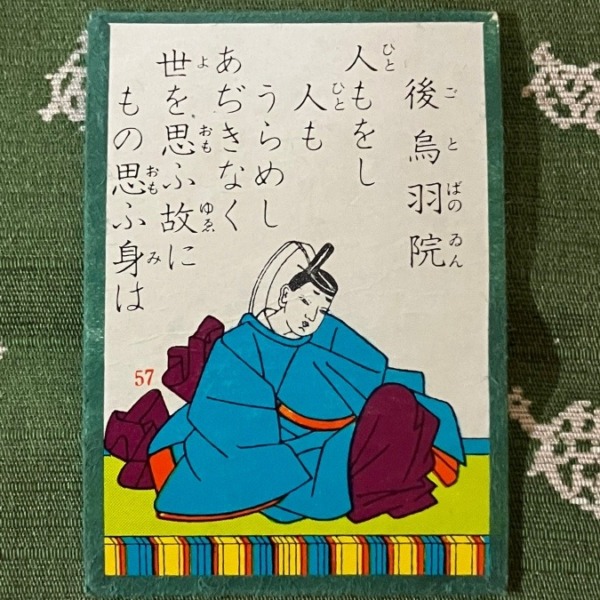 後鳥羽院
ごとばのゐん
人もをし
ひと
人も
ひと
うらめし
あぢきなく
世を思ふ故に
よおもゆゑ
もの思ふ身は
おもみ
57